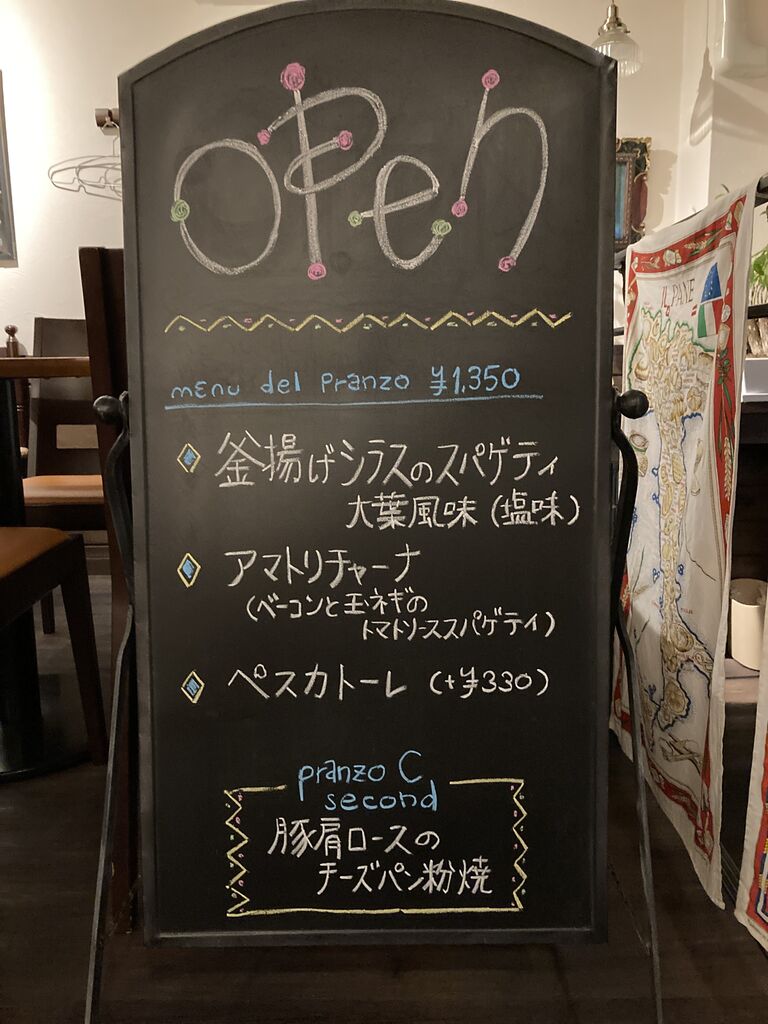 OPen
menu del pranzo ¥1,350
釜揚げシラスのスパゲティ
大葉風味(塩味)
アマトリチャーナ
(ベーコンと玉ネギの
トマトソーススパゲティ)
ペスカトーレ (+¥330)
pranzo C
second
豚肩ロースの
チーズパン粉焼
IL PANE